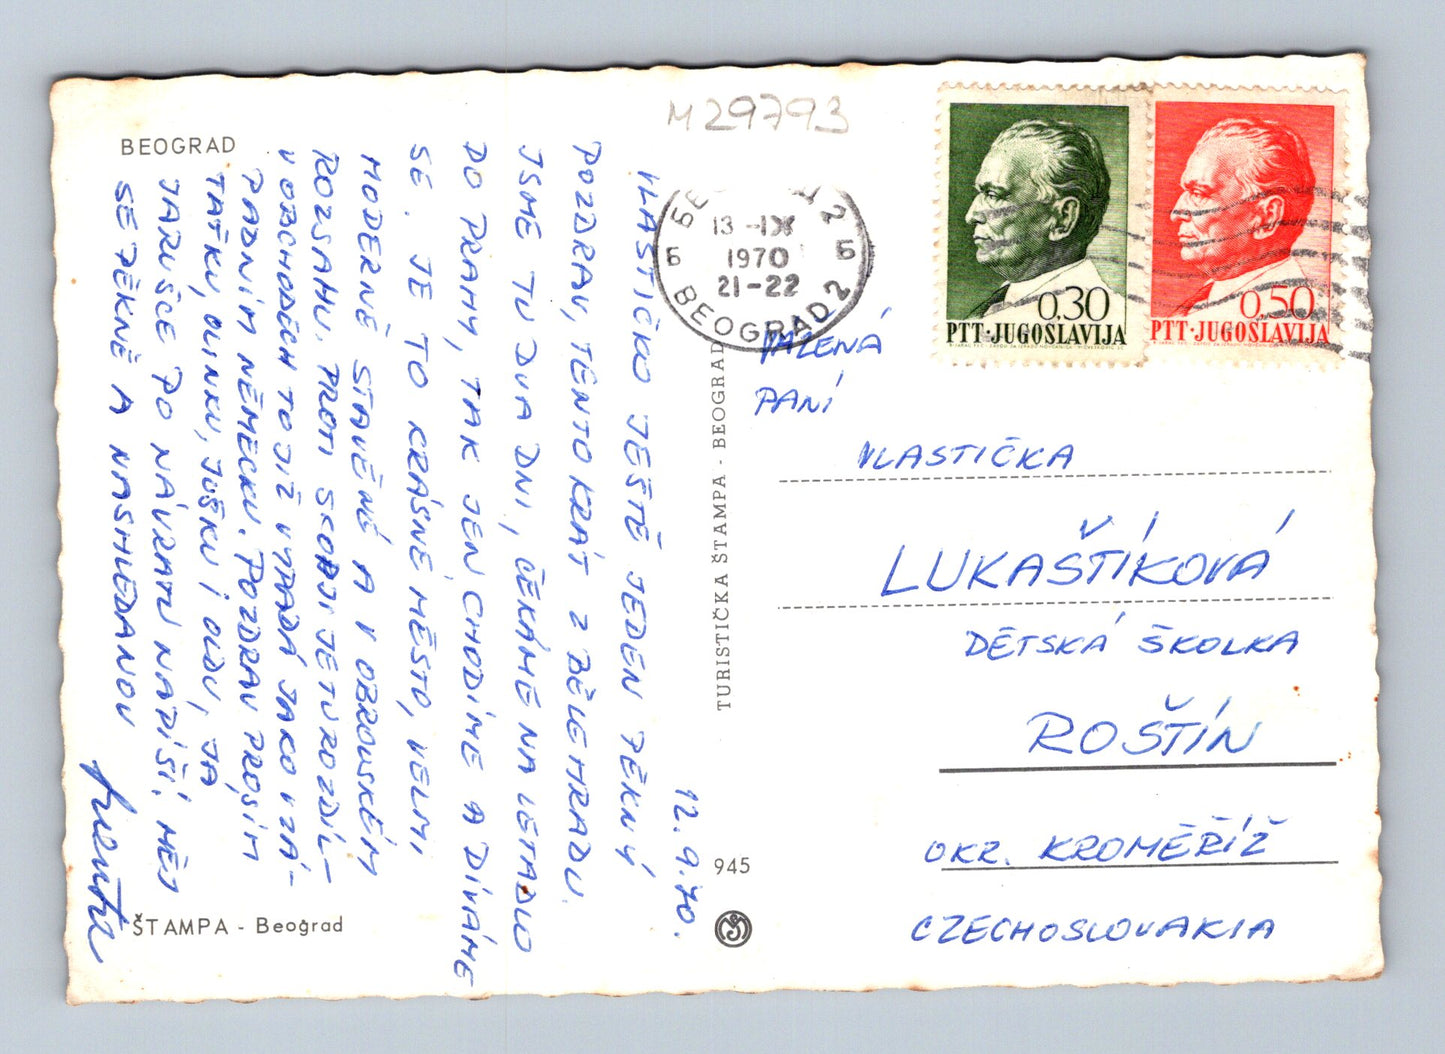 M29793
BEOGRAD
12.9.70.
VLASTIČKO JEŠTĚ JEDEN PĚKNÝ
POZDRAV, TENTOKRÁT Z BĚLEHRADU.
JSME TU DVA DNI, ČEKÁME NA LETADLO
DO PRAHY, TAK JEN CHODÍME A DÍVÁME
SE. JE TO KRÁSNÉ MĚSTO, VELMI
MODERNĚ STAVĚNÉ A V OBROVSKÉM
ROZSAHU. PROTI SKOPJI JE TU ROZDÍL-
V OBCHODECH TO JIŽ VYPADÁ JAKO V ZÁ-
PADNÍM NĚMECKU. POZDRAV PROSÍM
TAŤKU, OLINKU, JOŠKU I OLDU, JÁ
JARUŠCE PO NÁVRATU NAPÍŠI. MĚJ
SE PĚKNĚ A NASHLEDANOU
ŠTAMPA - Beograd
TURISTIČKA ŠTAMPA - BEOGRAD
945
13-IX
1970
21-22
Б
Б
BEOGRAD 2
0,30
PTT·JUGOSLAVIJA
0,50
PTT·JUGOSLAVIJA
VÁŽENÁ
PANÍ
VLASTIČKA
LUKAŠTÍKOVÁ
DĚTSKÁ ŠKOLKA
ROŠTÍN
OKR. KROMĚŘÍŽ
CZECHOSLOVAKIA